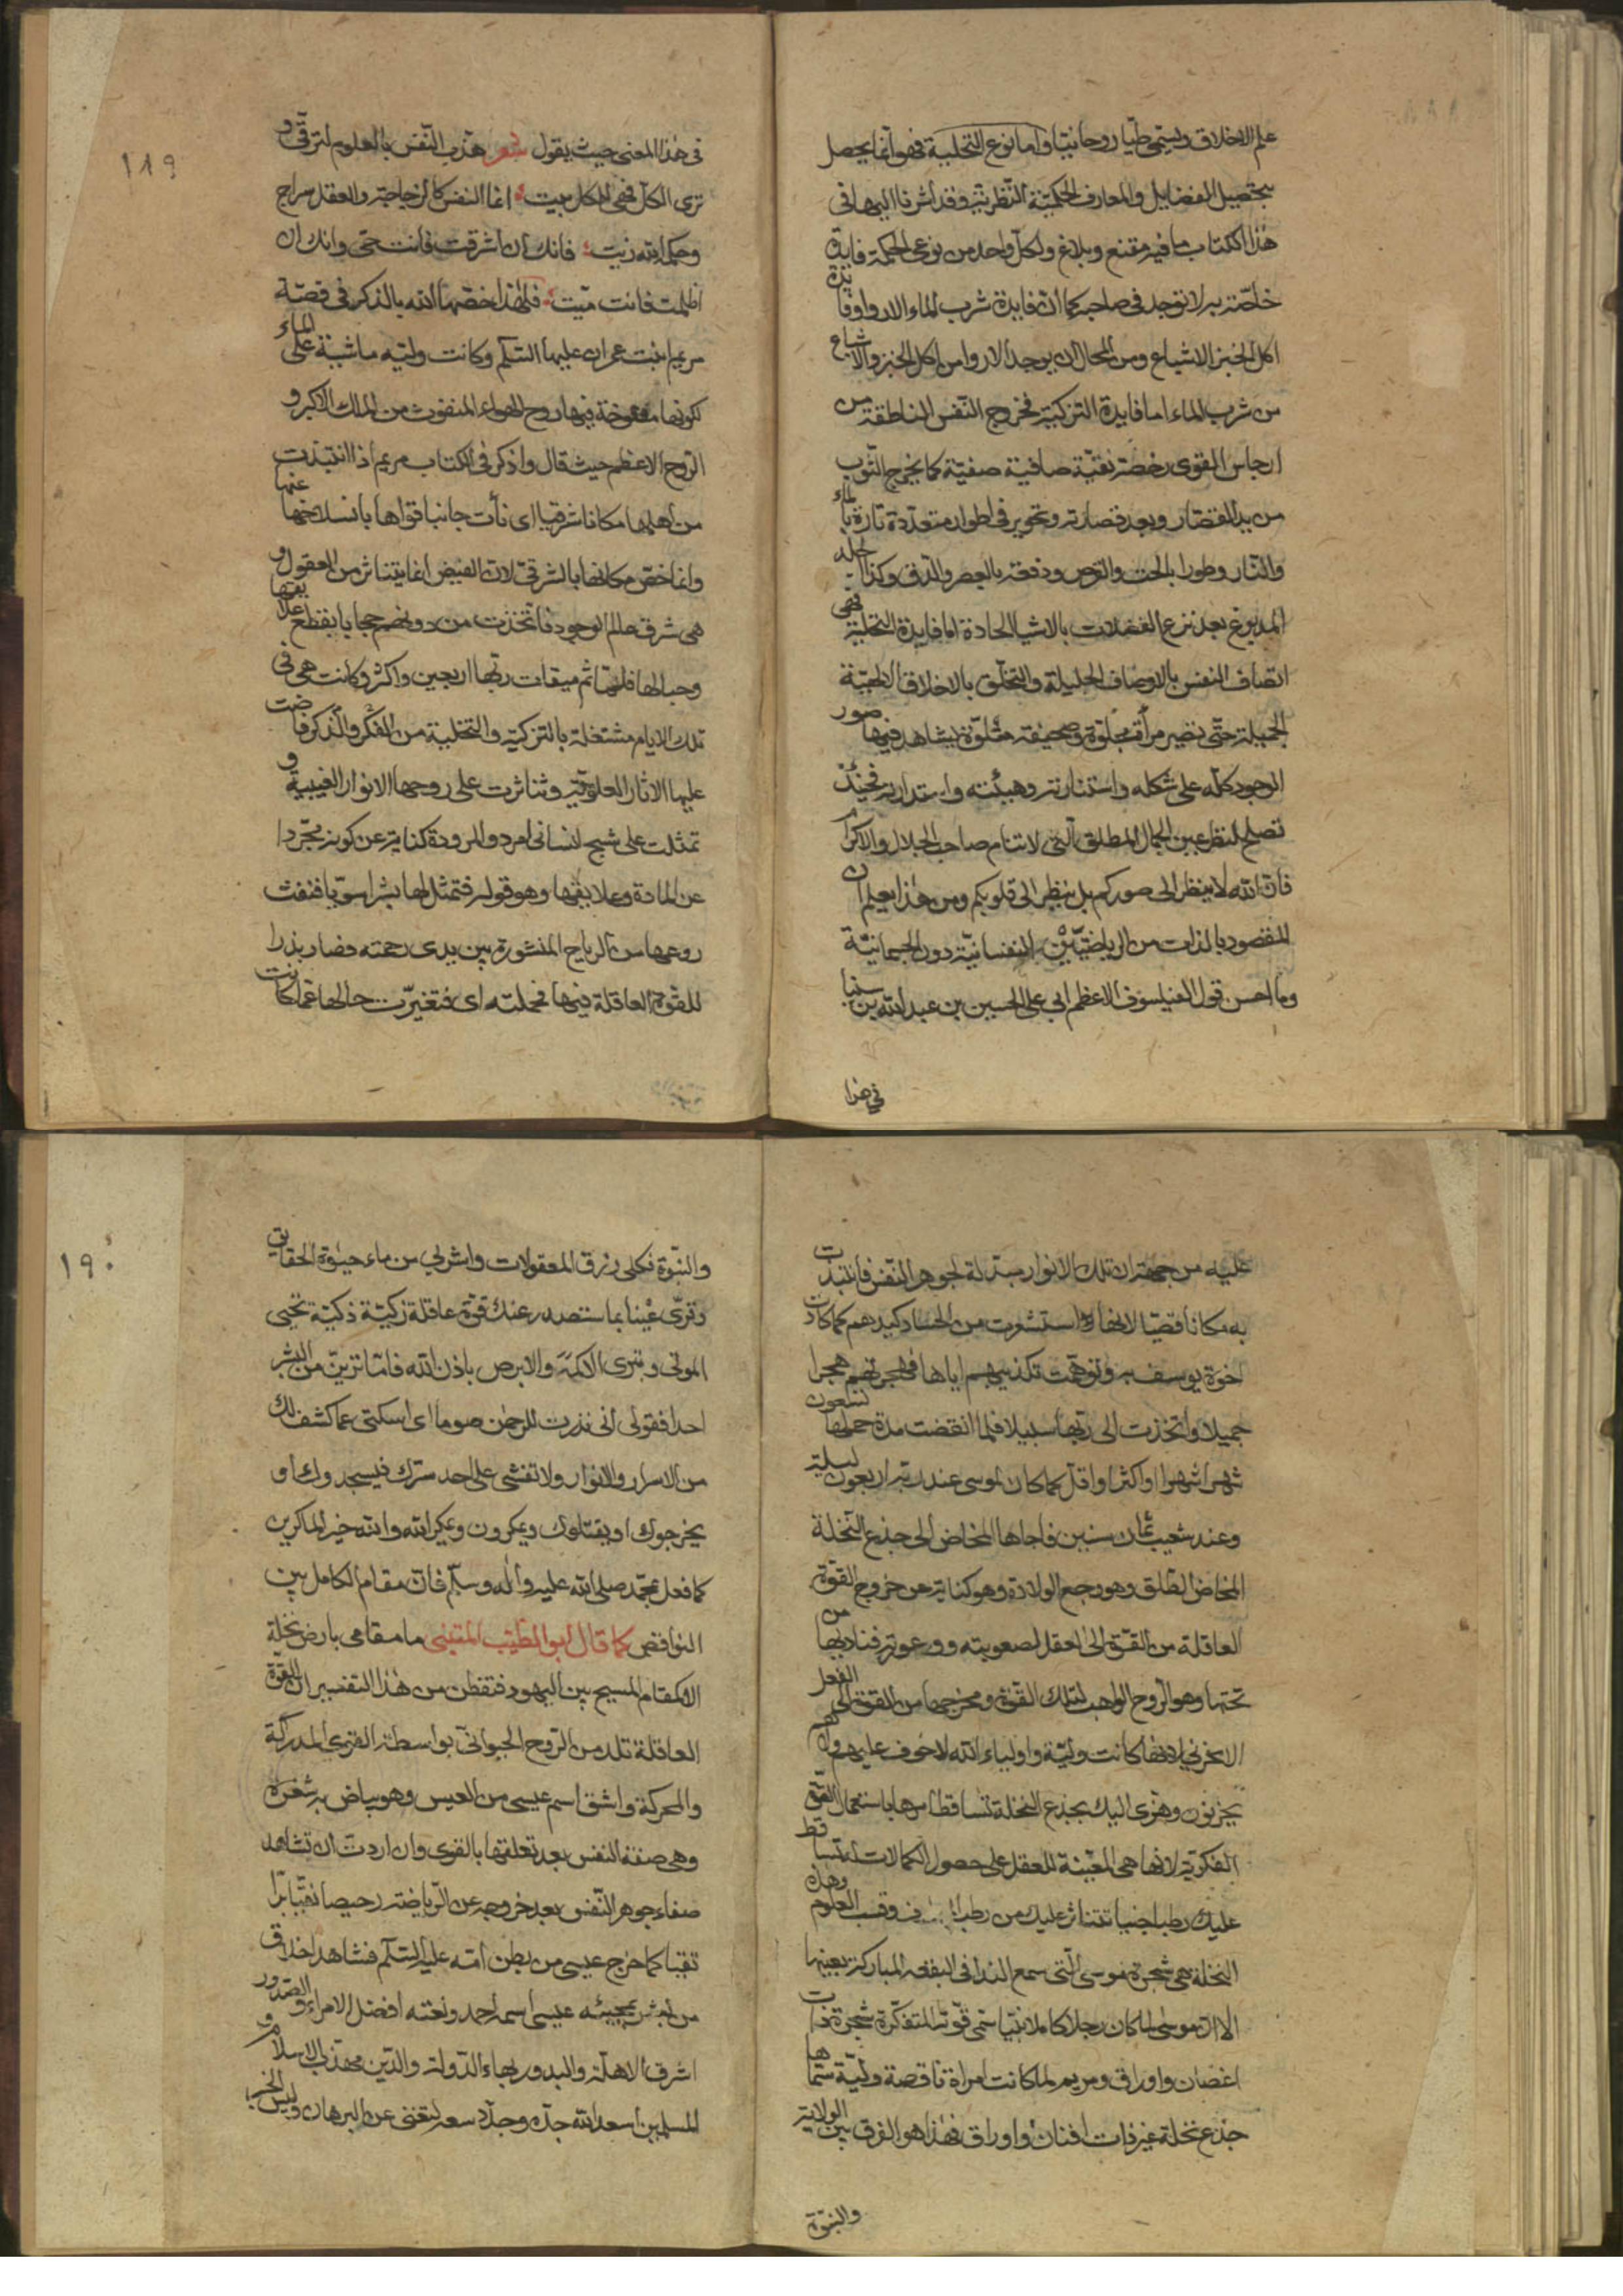 علم الاخلاق ويسمى طبا روحانيا واما نوع التحلية فهو انما يحصل
بتحصيل الفضايل والمعارف الحكمية النظرية وقد اشرنا اليها في
هذا الكتاب ما فيه مقنع وبلاغ ولكل واحد من نوعى الحكمة فايدة
خاصة به لا توجد في صاحبه كما ان فايدة شرب الماء الارواء وفايدة
اكل الخبز الاشباع ومن المحال ان يوجد الارواء من اكل الخبز والاشباع
من شرب الماء اما فايدة التزكية فخروج النفس الناطقة من
ارجاس القوى رخصة نقية صافية صفية كما يخرج الثوب
من يد القصار وبعد قصارته وتحويره في اطوار متعددة تارة بالماء
والنار وطورا بالحت والقرص ودفعة بالعصر والدق وكذا الجلد
المدبوغ بعد نزع الفضلات بالاشيا الحادة اما فايدة التحلية فهى
اتصاف النفس بالاوصاف الجليلة والتخلق بالاخلاق الالهية
الجميلة حتى تصير مرآة مجلوة وصحيفة متلوة يشاهد فيها صور
الوجود كله على شكله واستنارته وهيئته واستدارته فحينئذ
تصلح لنظر عين الجمال المطلق التى لا تنام صاحب الجلال والاكرام
فان الله لا ينظر الى صوركم بل ينظر الى قلوبكم ومن هذا يعلم ان
المقصود بالذات من الرياضتين النفسانية دون الجسمانية
وما احسن قول الفيلسوف الاعظم ابى على الحسين بن عبد الله بن سينا
في هذا
١١٩
في هذا المعنى حيث يقول شعر هذب النفس بالعلوم لترقى و
ترى الكل فهى للكل بيت انما النفس كالزجاجة والعقل سراج
وحكمة الله زيت فانك ان اشرقت فانت حى وانك ان
اظلمت فانت ميت فلهذا خصها الله بالذكر في قصة
مريم ابنت عمران عليها السلم وكانت ولية ماشية على الماء
لكونها منفوخة فيها روح الهواء المنفوث من الملك الاكبر و
الروح الاعظم حيث قال واذكر في الكتاب مريم اذا انتبذت
من اهلها مكانا شرقيا اى نأت جانبا قواها بانسلاخها عنها
وانما خص مكانها بالشرقى لان الفيض انما يتناثر من العقول و
هى شرق عالم الوجود فاتخذت من دونهم حجابا بقطع علايقها
وحبالها فلما تم ميقات ربها اربعين واكثر وكانت هى في
تلك الايام مشتغلة بالتزكية والتخلية من الفكر والذكر فاضت
عليها الاثار العلوية وتناثرت على روحها الانوار الغيبية و
تمثلت على شبح انسانى امرد والمرودة كناية عن كونه مجردا
عن المادة وعلايقها وهو قوله فتمثل لها بشرا سويا فنفث
روعها من الرياح المنشورة بين يدى رحمته فصار بذرا
للقوة العاقلة فيها فحملته اى فتغيرت حالها عما كانت
عليه من جهة ان تلك الانوار مبدلة لجوهر النفس فانتبذت
به مكانا قصيا لانها استشعرت من الحساد كيدهم كما كادت
اخوة يوسف به وتوهمت تكذيبهم اياها فهجرتهم هجرا
جميلا واتخذت الى ربها سبيلا فلما انقضت مدة حملها تسعون
شهرا شهرا او اكثر او اقل كما كان لموسى عند ربه اربعون ليلة
وعند شعيب ثمان سنين فاجاها المخاض الى جذع النخلة
المخاض الطلق وهو وجع الولادة وهو كناية عن خروج القوة
العاقلة من القوة الى العقل لصعوبته ووعورته فناديها من
تحتها وهو الروح الواهب لتلك القوة ومخرجها من القوة الى الفعل
الا تحزنى لانها كانت ولية واولياء الله لا خوف عليهم ولا هم
يحزنون وهزى اليك بجذع النخلة تساقط امرها باستعمال القوة
الفكرية لانها هى المعينة للعقل على حصول الكمالات لتساقط
عليك رطبا جنيا تتناثر عليك من رطب وقسب العلوم وهذه
النخلة هى شجرة موسى التى سمع الندا في البقعة المباركة بعينها
الا ان موسى لما كان رجلا كاملا نبيا سمى قوته المتفكرة شجرة ذات
اغصان واوراق ومريم لما كانت امراة ناقصة ولية سماها
جذع نخلة غير ذات افنان واوراق فهذا هو الفرق بين الولاية
والنبوة
١٩٠
والنبوة فكلى رزق المعقولات واشربى من ماء حيوة الحقايق
وقرى عينا بما ستصدر عنك قوة عاقلة زكية ذكية تحيى
الموتى وتبرى الاكمه والابرص باذن الله فاما ترين من البشر
احدا فقولى انى نذرت للرحمن صوما اى اسكتى عما كشف لك
من الاسرار والانوار ولا تفشى على احد سترك فيسجدوك او
يخرجوك او يقتلوك ويمكرون ويمكر الله والله خير الماكرين
كما فعل بمحمد صلى الله عليه واله وسلم فان مقام الكامل بين
النواقص كما قال ابو الطيب المتنبى ما مقامى بارض نخلة
الا كمقام المسيح بين اليهود فتفطن من هذا التفسير ان القوة
العاقلة تلد من الروح الحيوانى بواسطة القوى المدركة
والمحركة واشتق اسم عيسى من العيس وهو بياض به شقرة
وهى صفة النفس بعد تعلقها بالقوى وان اردت ان تشاهد
صفاء جوهر النفس بعد خروجه عن الرياضة رحيصا نقيا برا
تقيا كما خرج عيسى من بطن امه عليه السلم فشاهد اخلاق
من بشر بمجيئه عيسى اسمه احمد ونعته افضل الامراء والصدور و
اشرف الاهلة والبدور بهاء الدولة والدين مهذب الاسلام و
المسلمين اسعد الله جده وجدد سعده لتغنى عن البرهان وليس الخبر